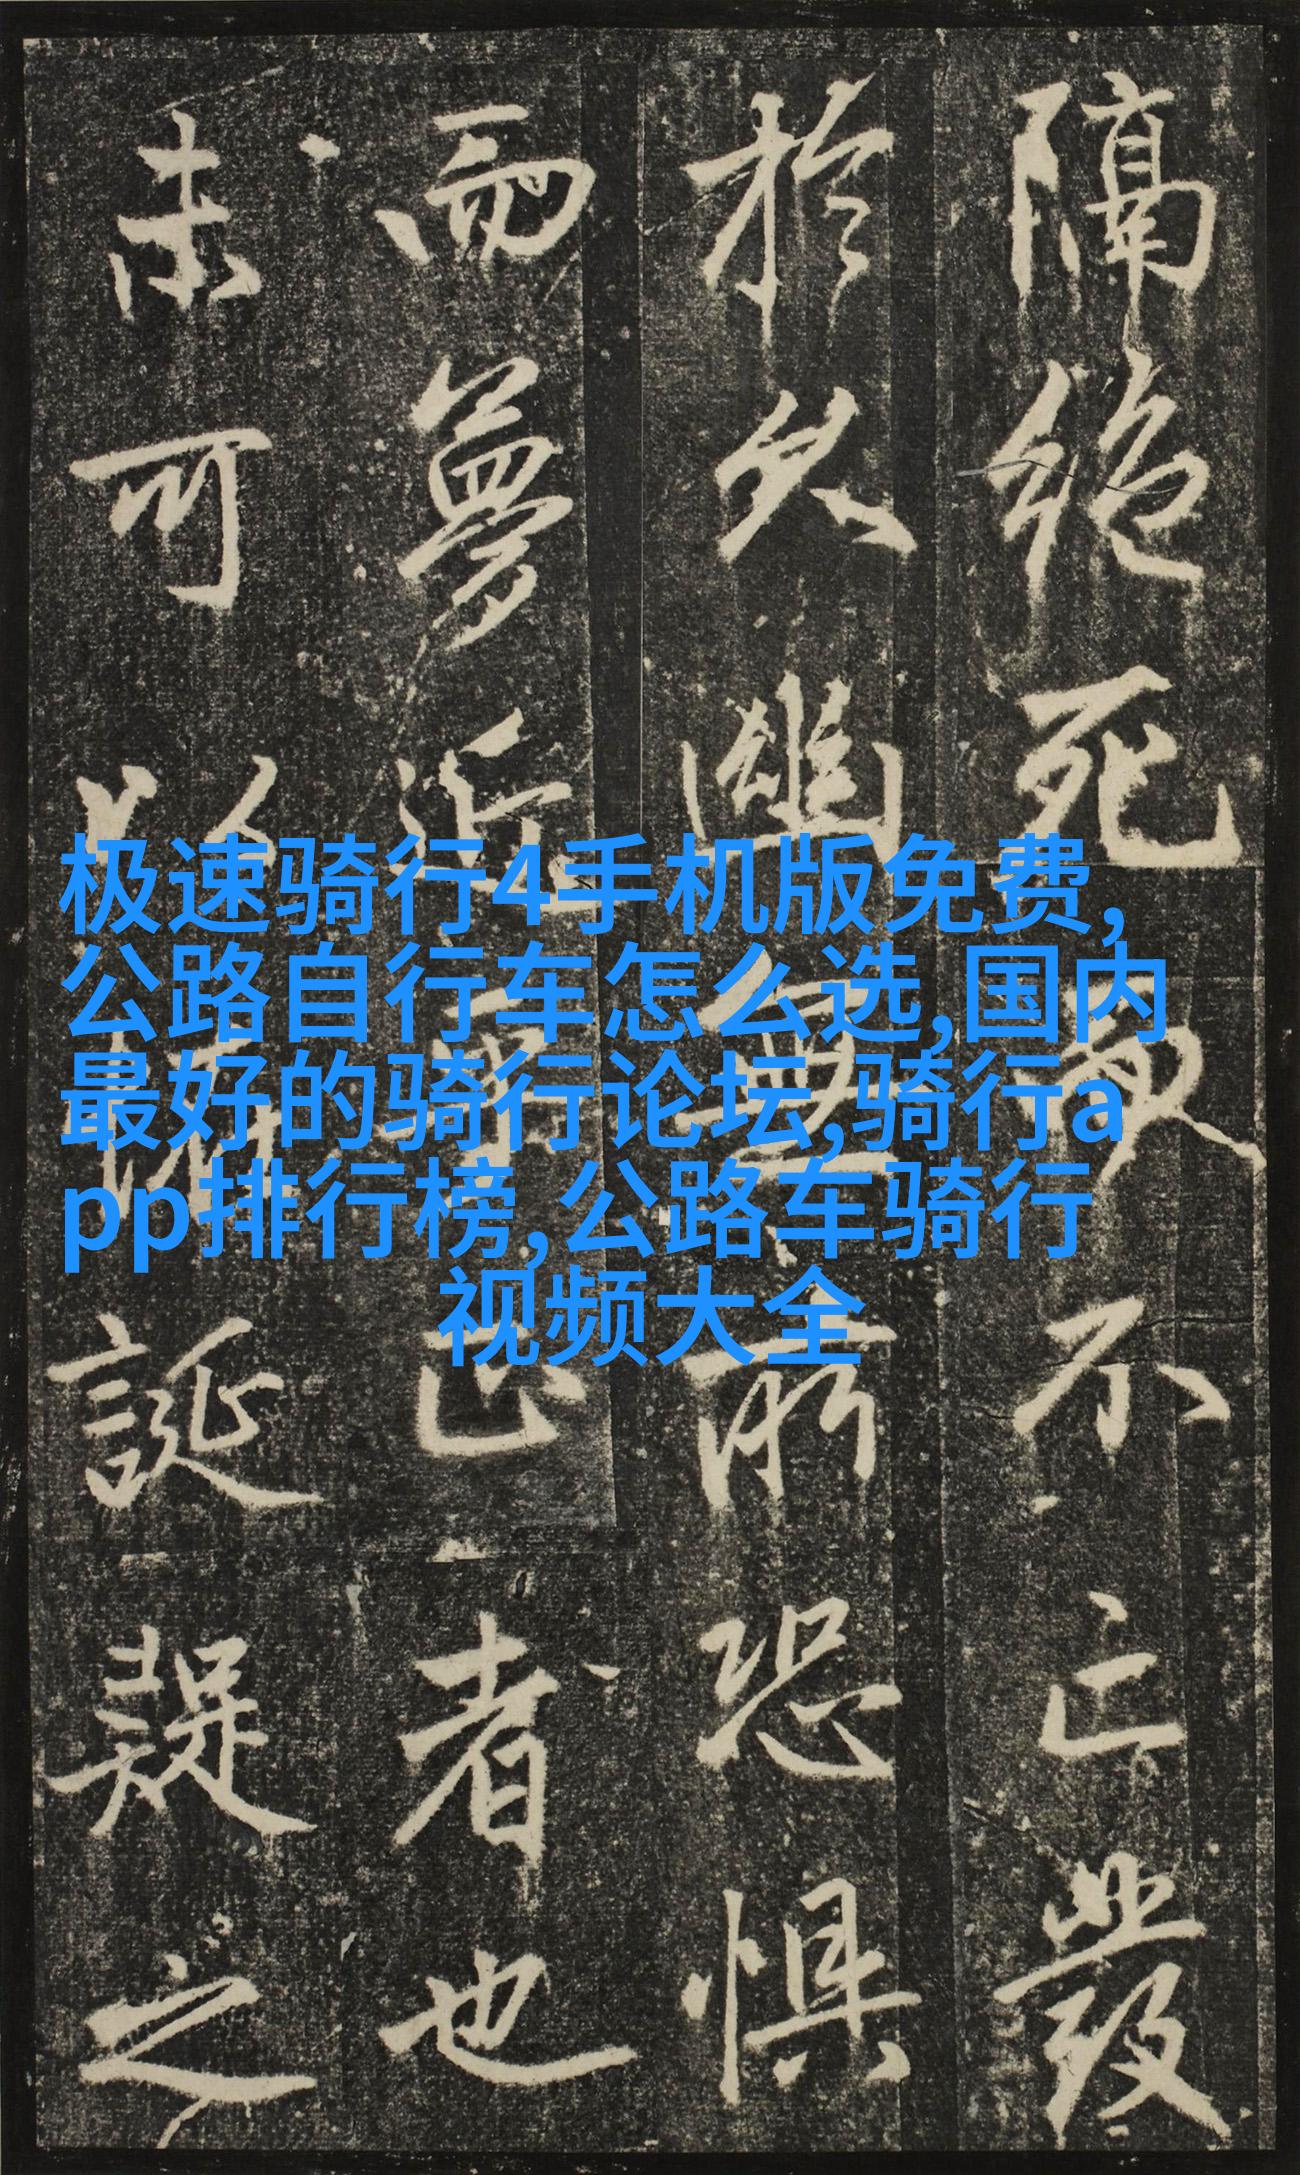 隔絕死不亡發
於久幽無所恐懼
而夢近正者也
未可以誕疑之
极速骑行4手机版免费,
公路自行车怎么选,国内
最好的骑行论坛,骑行a
pp排行榜,公路车骑行
视频大全